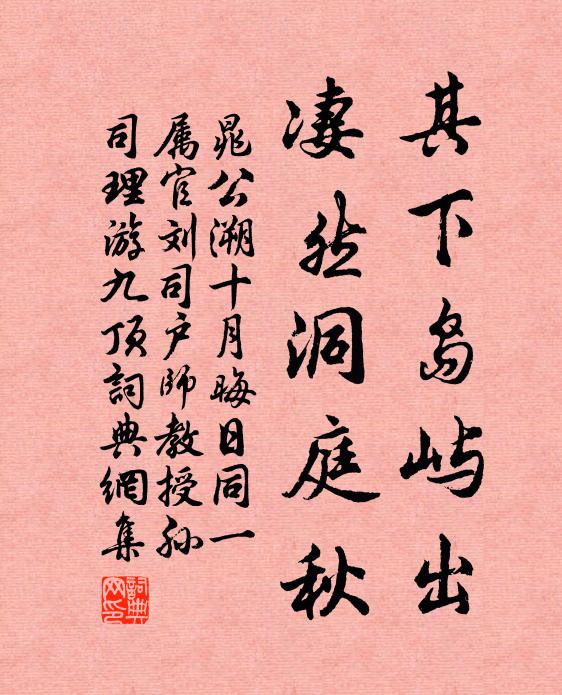 其下岛屿出
凄然洞庭秋
晁公溯十月晦日同一
属官刘司户师教授孙
司理游九顶詞典網集
詞典網印